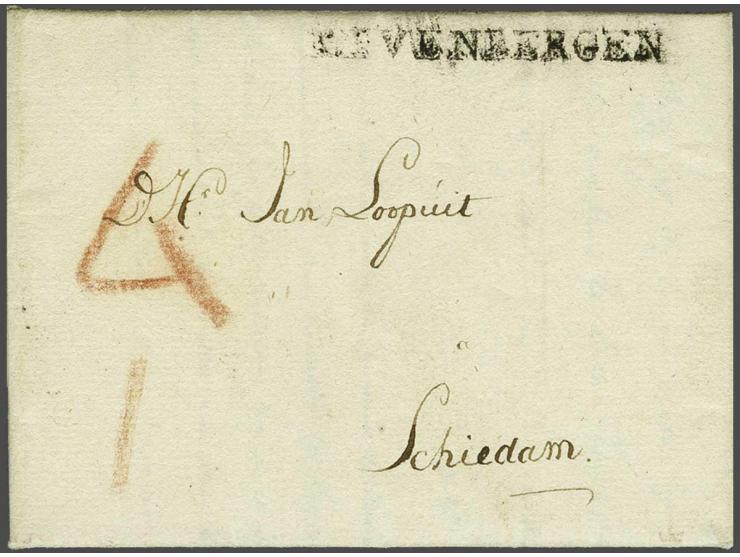 ZEVENBERGEN
D Hr. Jan Loopuit
a
Schiedam.